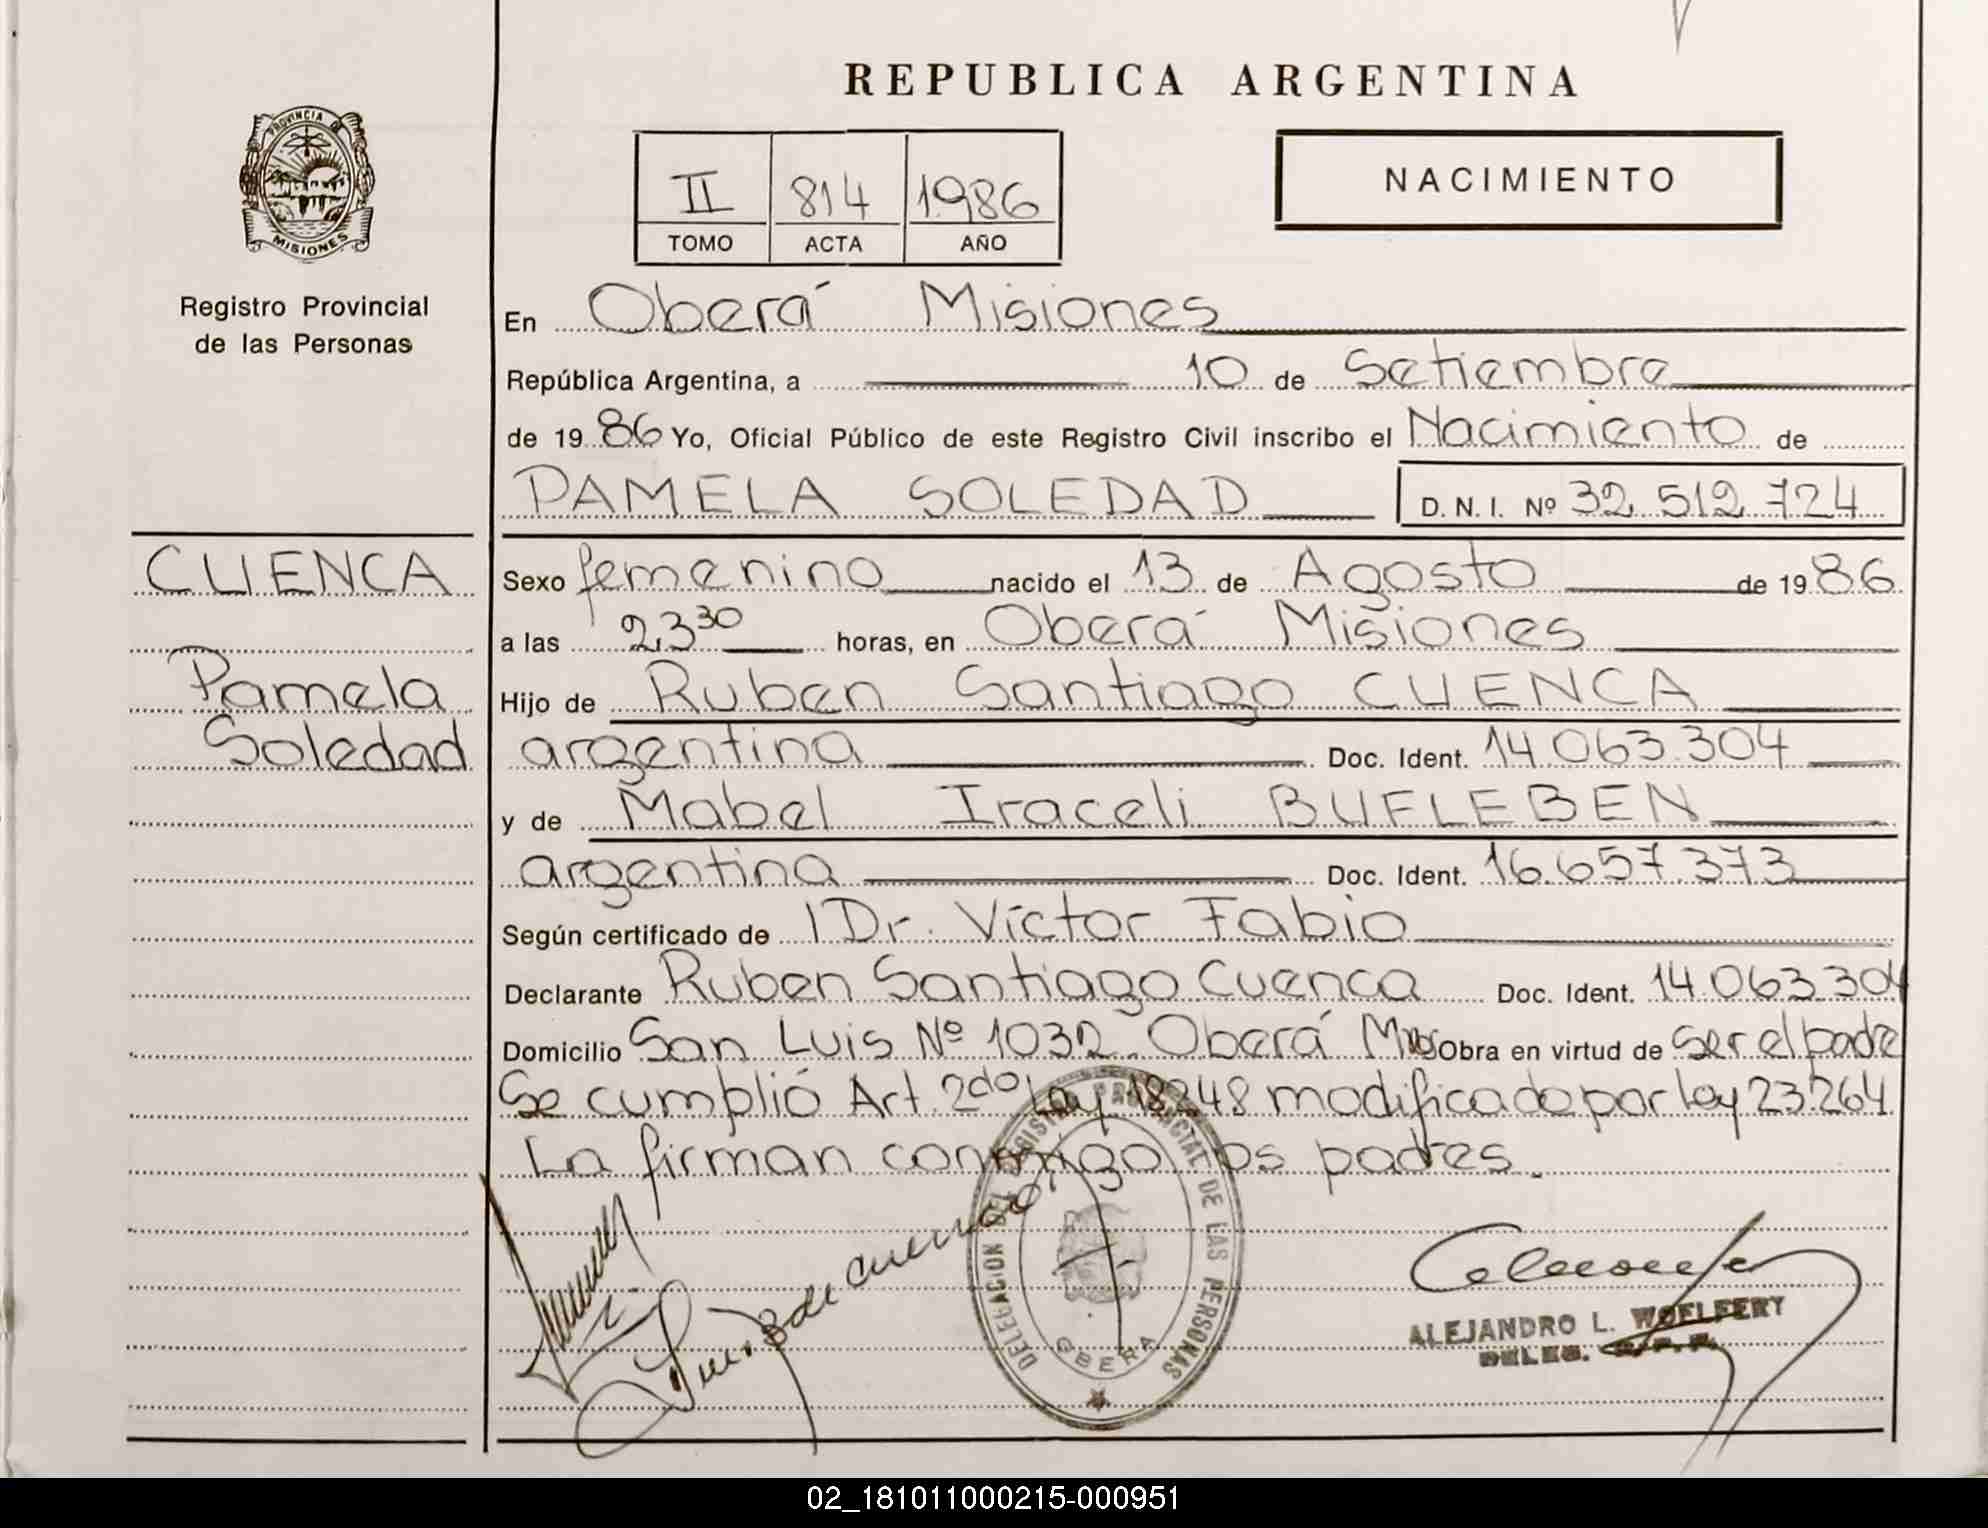 REPUBLICA ARGENTINA
PROVINCIA DE
MISIONES
Registro Provincial
de las Personas
II 814 1986
TOMO ACTA AÑO
NACIMIENTO
En Oberá Misiones
República Argentina, a 10 de Setiembre
de 19 86 Yo, Oficial Público de este Registro Civil inscribo el Nacimiento de
PAMELA SOLEDAD D. N. I. Nº 32 512 724
CUENCA
Pamela
Soledad
Sexo femenino nacido el 13 de Agosto de 19 86
a las 23 30 horas, en Oberá Misiones
Hijo de Ruben Santiago CUENCA
argentina Doc. Ident. 14.063.304
y de Mabel Iraceli BUFLEBEN
argentina Doc. Ident. 16.657.373
Según certificado de Dr. Víctor Fabio
Declarante Ruben Santiago Cuenca Doc. Ident. 14.063.304
Domicilio San Luis Nº 1032 Oberá Mnes Obra en virtud de ser el padre
Se cumplió Art. 2do Ley 18248 modificado por ley 23.264
La firman conmigo los padres.
DELEGACION DEL REGISTRO PROVINCIAL DE LAS PERSONAS
OBERA
ALEJANDRO L. WOELFERT
DELEG.
02_181011000215-000951